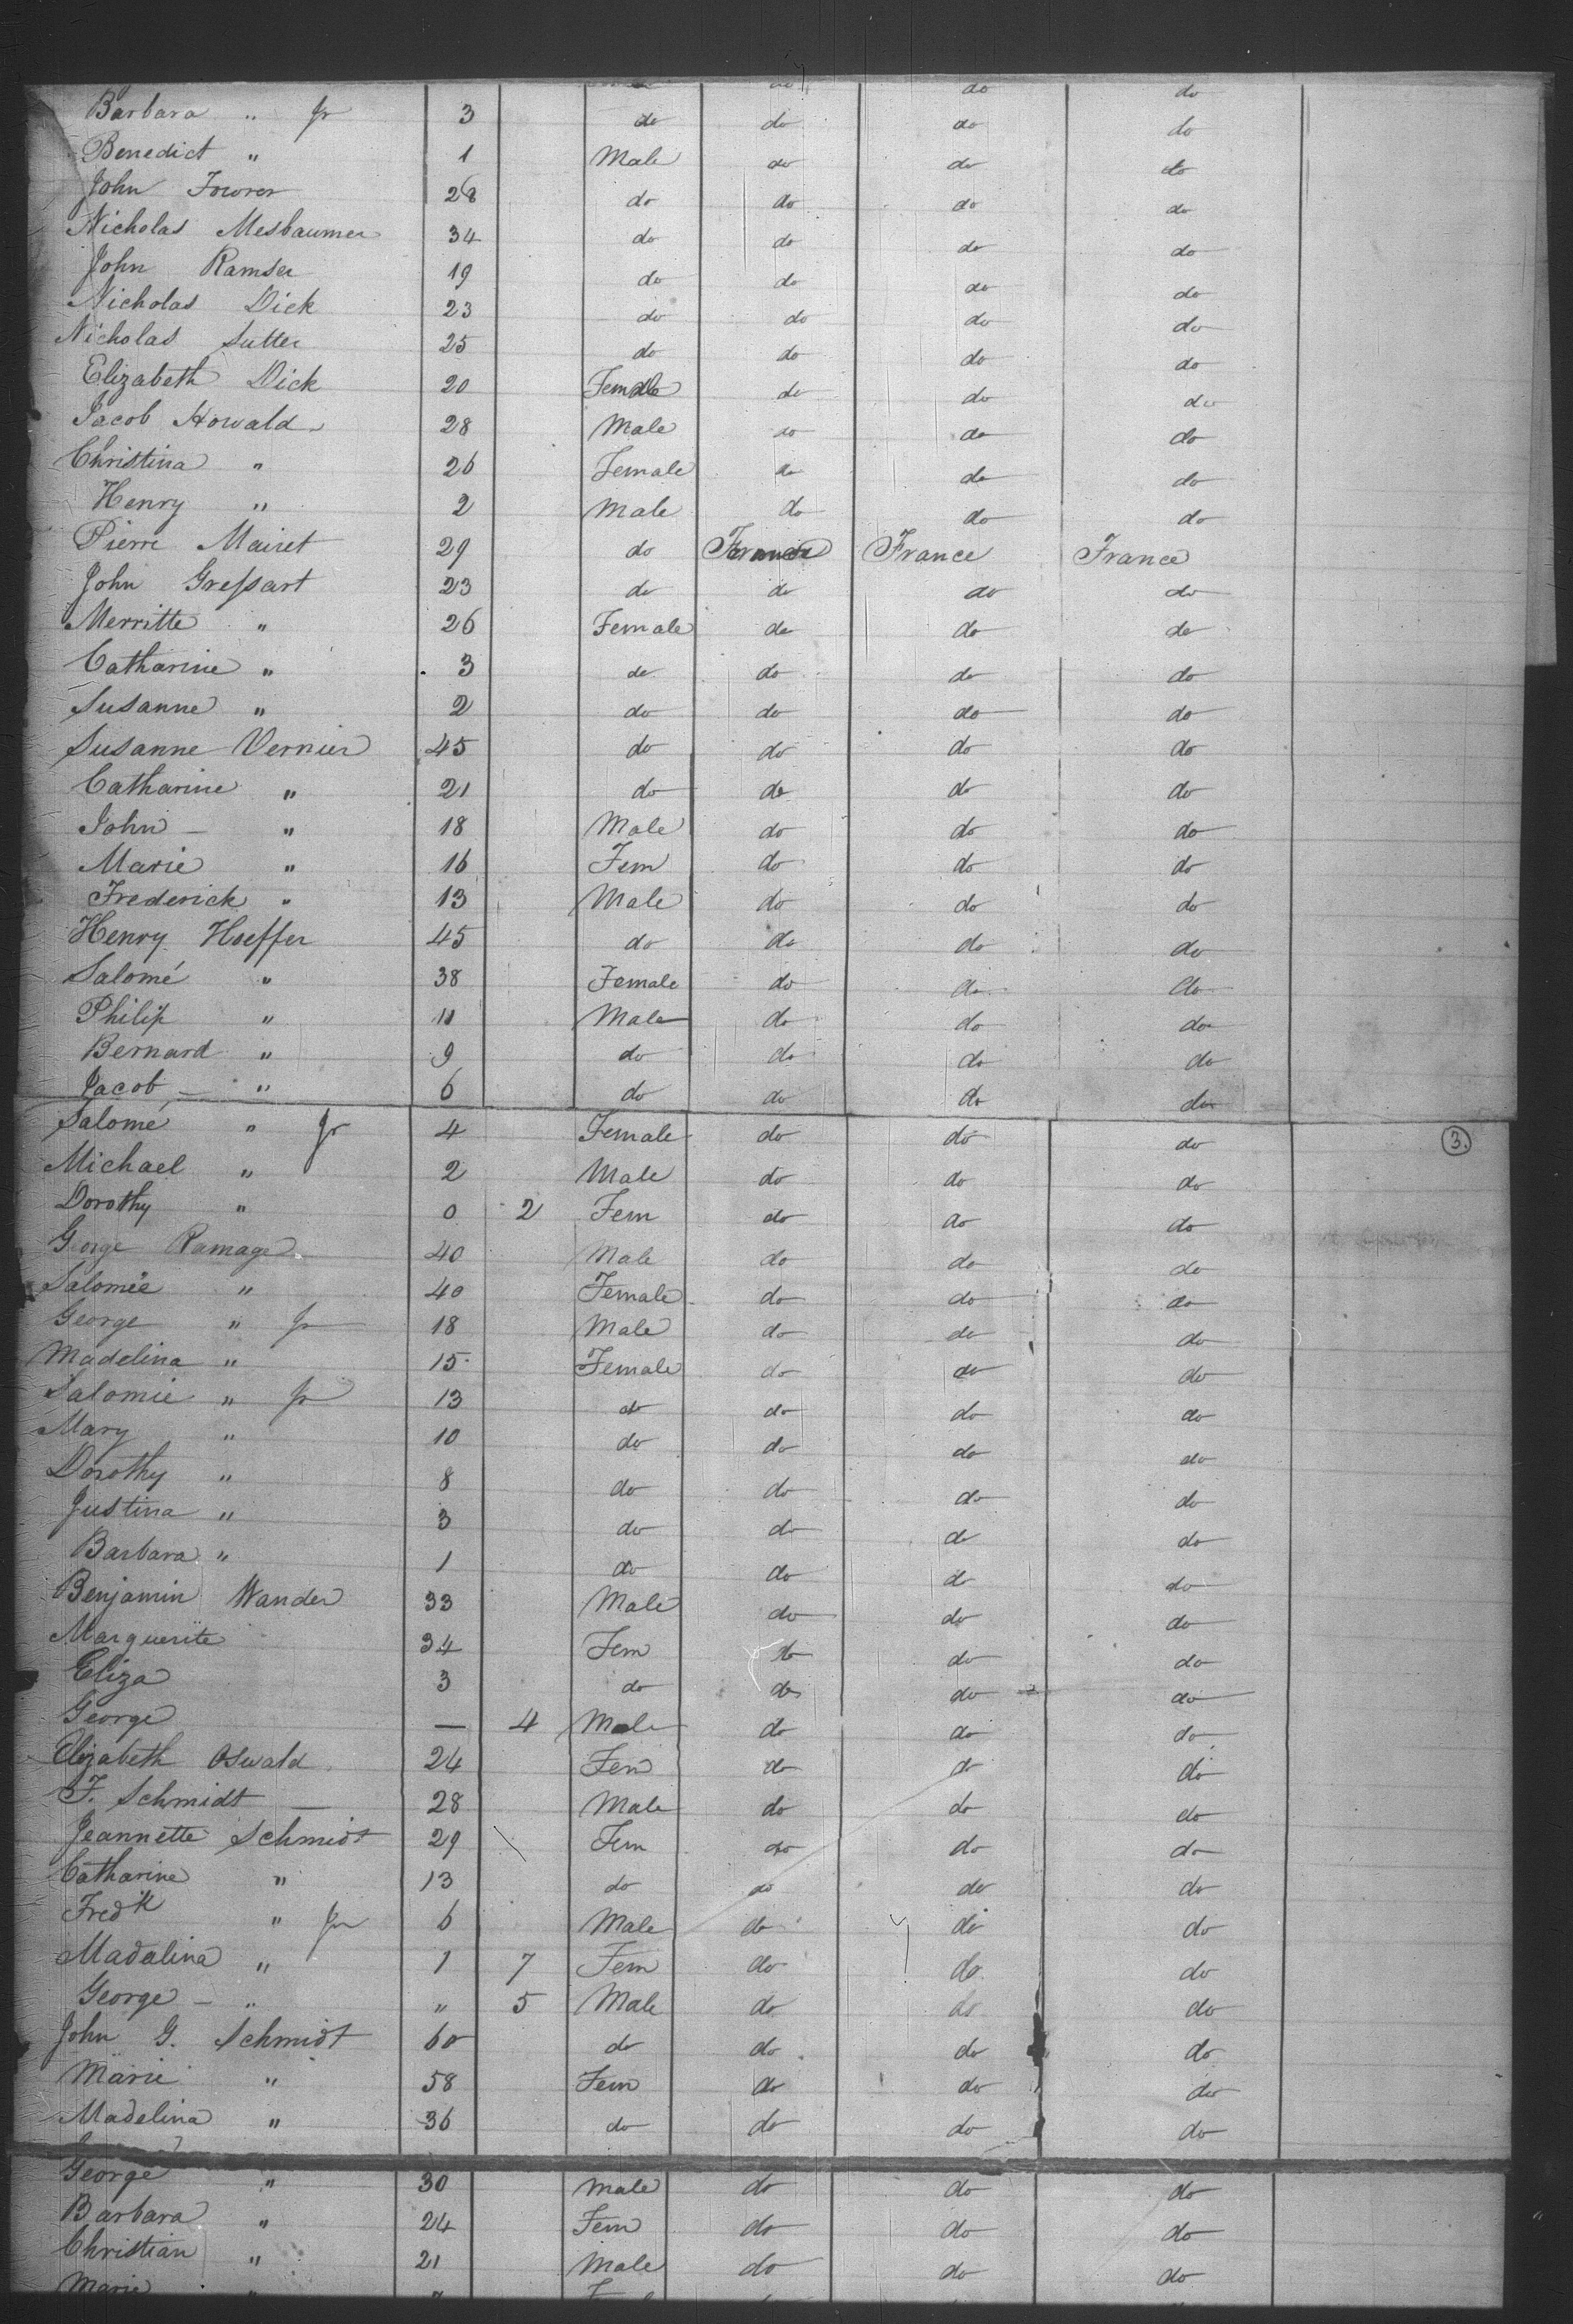 do do
Barbara " Jr 3 do do do do
Benedict " 1 Male do do do
John 28 do do do do
Nicholas Mesbaumer 34 do do do do
John Ramser 19 do do do do
Nicholas Dick 23 do do do do
Nicholas Sutter 25 do do do do
Elizabeth Dick 20 Female do do do
Jacob Howald 28 Male do do do
Christina " 26 Female do do do
Henry " 2 Male do do do
Pierre Mairet 29 do France France France
John Gressart 23 do do do do
Merritte " 26 Female do do do
Catharine " 3 do do do do
Susanne " 2 do do do do
Susanne Vernier 45 do do do do
Catharine " 21 do do do do
John - " 18 Male do do do
Marie " 16 Fem do do do
Frederick " 13 Male do do do
Henry Hoeffer 45 do do do do
Salomé " 38 Female do do do
Philip " 11 Male do do do
Bernard " 9 do do do do
Jacob - " 6 do do do do
Salomé " Jr 4 Female do do do 3.
Michael " 2 Male do do do
Dorothy " 0 2 Fem do do do
George Ramage 40 Male do do do
Salomée " 40 Female do do do
George " Jr 18 Male do do do
Madelina " 15 Female do do do
Salomie " Jr 13 do do do do
Mary " 10 do do do do
Dorothy " 8 do do do do
Justina " 3 do do do do
Barbara " 1 do do do do
Benjamin Wander 33 Male do do do
Marguerite 34 Fem do do do
Eliza 3 do do do do
George — 4 Male do do do
Elizabeth Oswald 24 Fem do do do
F. Schmidt — 28 Male do do do
Jeannette Schmidt 29 Fem do do do
Catharine " 13 do do do do
Fredk " Jr 6 Male do do do
Madalina " 1 7 Fem do do do
George - " " 5 Male do do do
John G. Schmidt 60 do do do do
Marie " 58 Fem do do do
Madelina " 36 do do do do
George " 30 Male do do do
Barbara " 24 Fem do do do
Christian " 21 Male do do do
Marie "